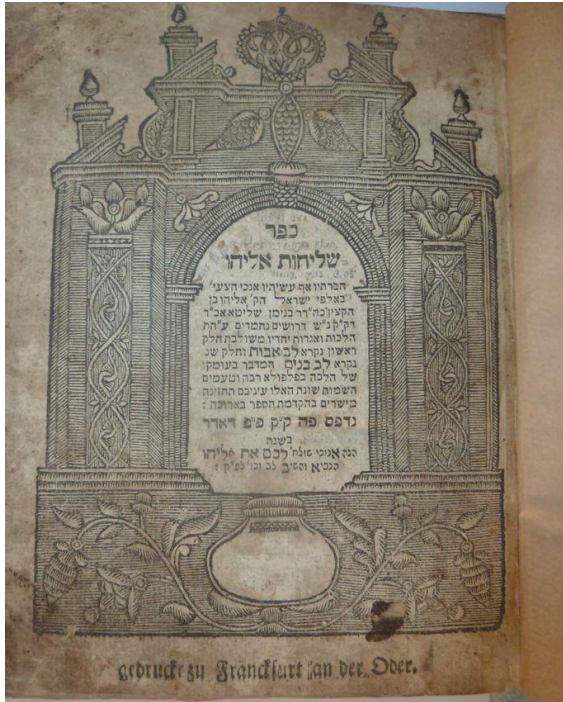 ספר
שליחות אליהו
חברתיו אף עשיתיו אנכי הצעי'
באלפי ישראל הק' אליהו בן
הקצין כה"רר בנימן שליטא אב"ד
דק"ק נ"ש דרושים נחמדים ע"הת
הלכות ואגדות יחדיו משולבת חלק
ראשון נקרא לב אבות וחלק שני
נקרא לב בנים המדבר בעומקו
של הלכה בפלפולא רבה וטעמים
השמות שונת האלו עיניכם תחזינה
מישרים בהקדמת הספר בארוכה :
נדפס פה ק"ק פ"פ דאדר
בשנת
הנה אנוכי שולח לכם את אליהו
הנביא והשיב לב וכו' לפ"ק :
gedruckt zu Franckfurt an der Oder.